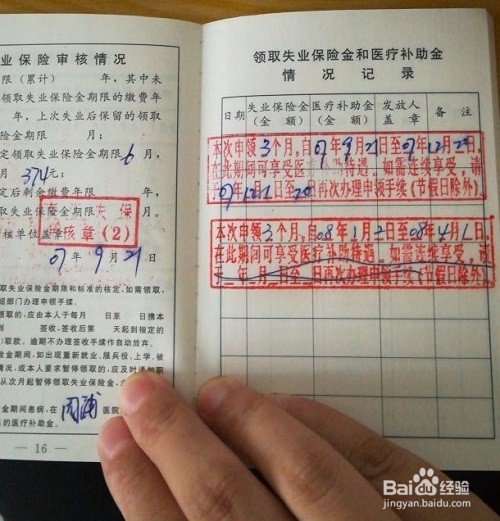 业保险审核情况
限(累计) 年,其中未
领取失业保险金期限的缴费年
年,上次失业后保留的领取
险金期限 月;
定领取失业保险金期限6月,
月374元;
定后剩余缴费年限 年,
取失业保险金期限 月。
失保
核章(2)
核单位盖章
07年9月21日
取失业保险金期限和标准的核定,如需领取,
组部门办理申领手续。
领取的,应由本人于每月 日至 日携本
到 签收,签收后第 天起到指定的
)取款。逾期不办理签收手续作自动放弃。
险金期间,如出现重新就业、服兵役、上学、被
情况,或本人要求暂停领取的,应及时通知
从次月起暂停领取失业保险金,
金期间患病,在周浦医院
的医疗补助金。
-16-
领取失业保险金和医疗补助金
情况记录
日期 失业保险金(金额) 医疗补助金(金额) 发放人盖章 备注
本次申领3个月,自07年9月21日至07年12月20日,
在此期间可享受医疗补助待遇。如需连续享受,请
于07年12月1至20日再次办理申领手续(节假日除外)。
本次申领3个月,自08年1月2日至08年4月1日,
在此期间可享受医疗补助待遇。如需连续享受,请
于 年 月 日至 日再次办理申领手续(节假日除外)。
Baidu经验
jingyan.baidu.com